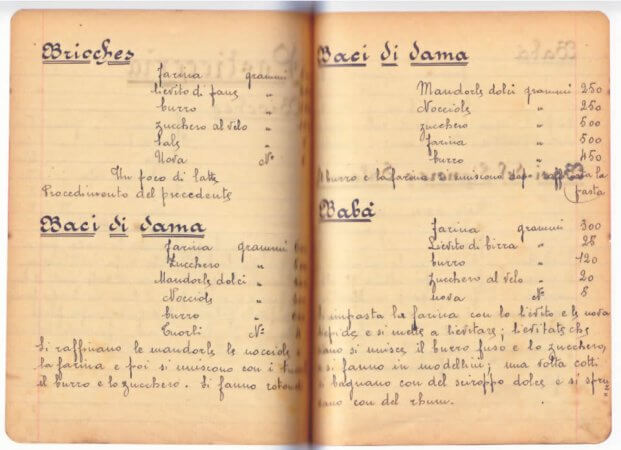 Brioches
farina grammi
lievito di pane "
burro "
zucchero al velo "
sale "
Uova N°
Un poco di latte
Procedimento del precedente
Baci di dama
farina grammi
Zucchero "
Mandorle dolci "
Nocciole "
burro "
Tuorli N°
Si raffinano le mandorle le nocciole
la farina e poi si uniscono con i
il burro e lo zucchero. Si fanno
Baci di dama
Mandorle dolci grammi 250
Nocciole " 250
zucchero " 500
farina " 500
burro " 450
burro e la farina si uniscono dopo con la
pasta
Babà
farina grammi 300
Lievito di birra " 25
burro " 120
zucchero al velo " 20
uova N°
impasta la farina con lo lievito e le uova
e si mette a lievitare; lievitate che
si unisce il burro fuso e lo zucchero,
si fanno in modellini; una volta cotti
si bagnano con del sciroppo dolce e si spru=
zano con del rhum.